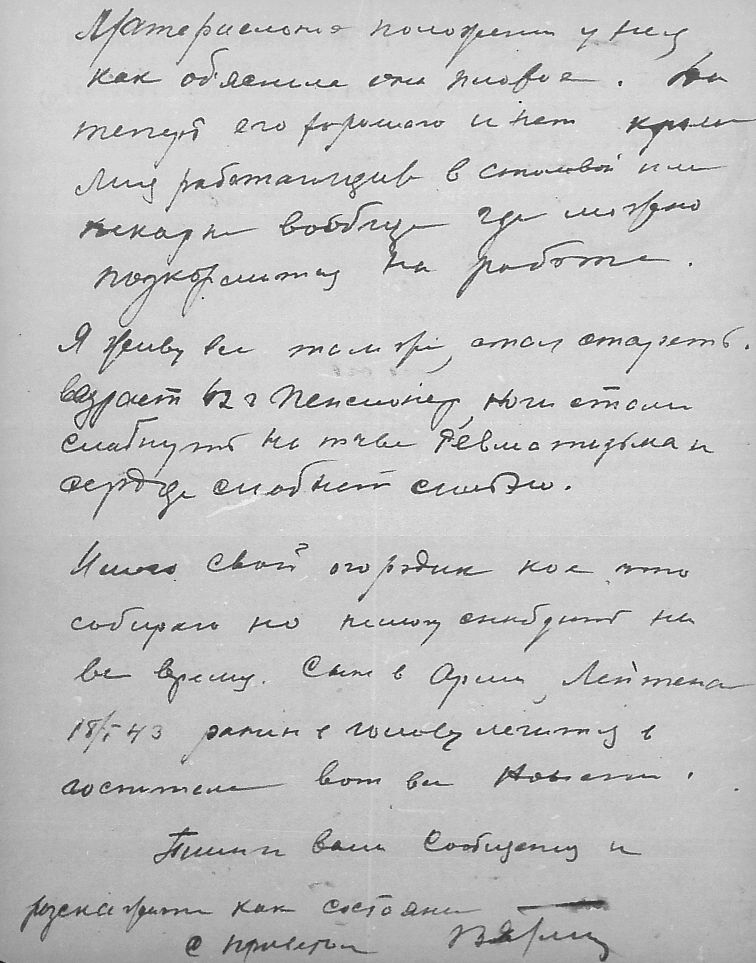 Материальное положение у нея
как обяснила она пловое. Да
теперь его хорошаго и нет кроме
лиц работающив в столовой или
пекарне вообще где можно
подкормится на работе.
Я живу все там же, стал стареть.
вазраст 62 г Пенсионер, ноги стали
слабнуть на почве Ревматизма и
сердце слабнет сильно.
Имею свой огородик кое что
собираю но
все время. Сын в Армии, Лейтена
18/I 43 ранин в голову лечится в
госпитале вот все Новости.
Пишите ваши Сообщения и
розскажите как состояние
с приветом